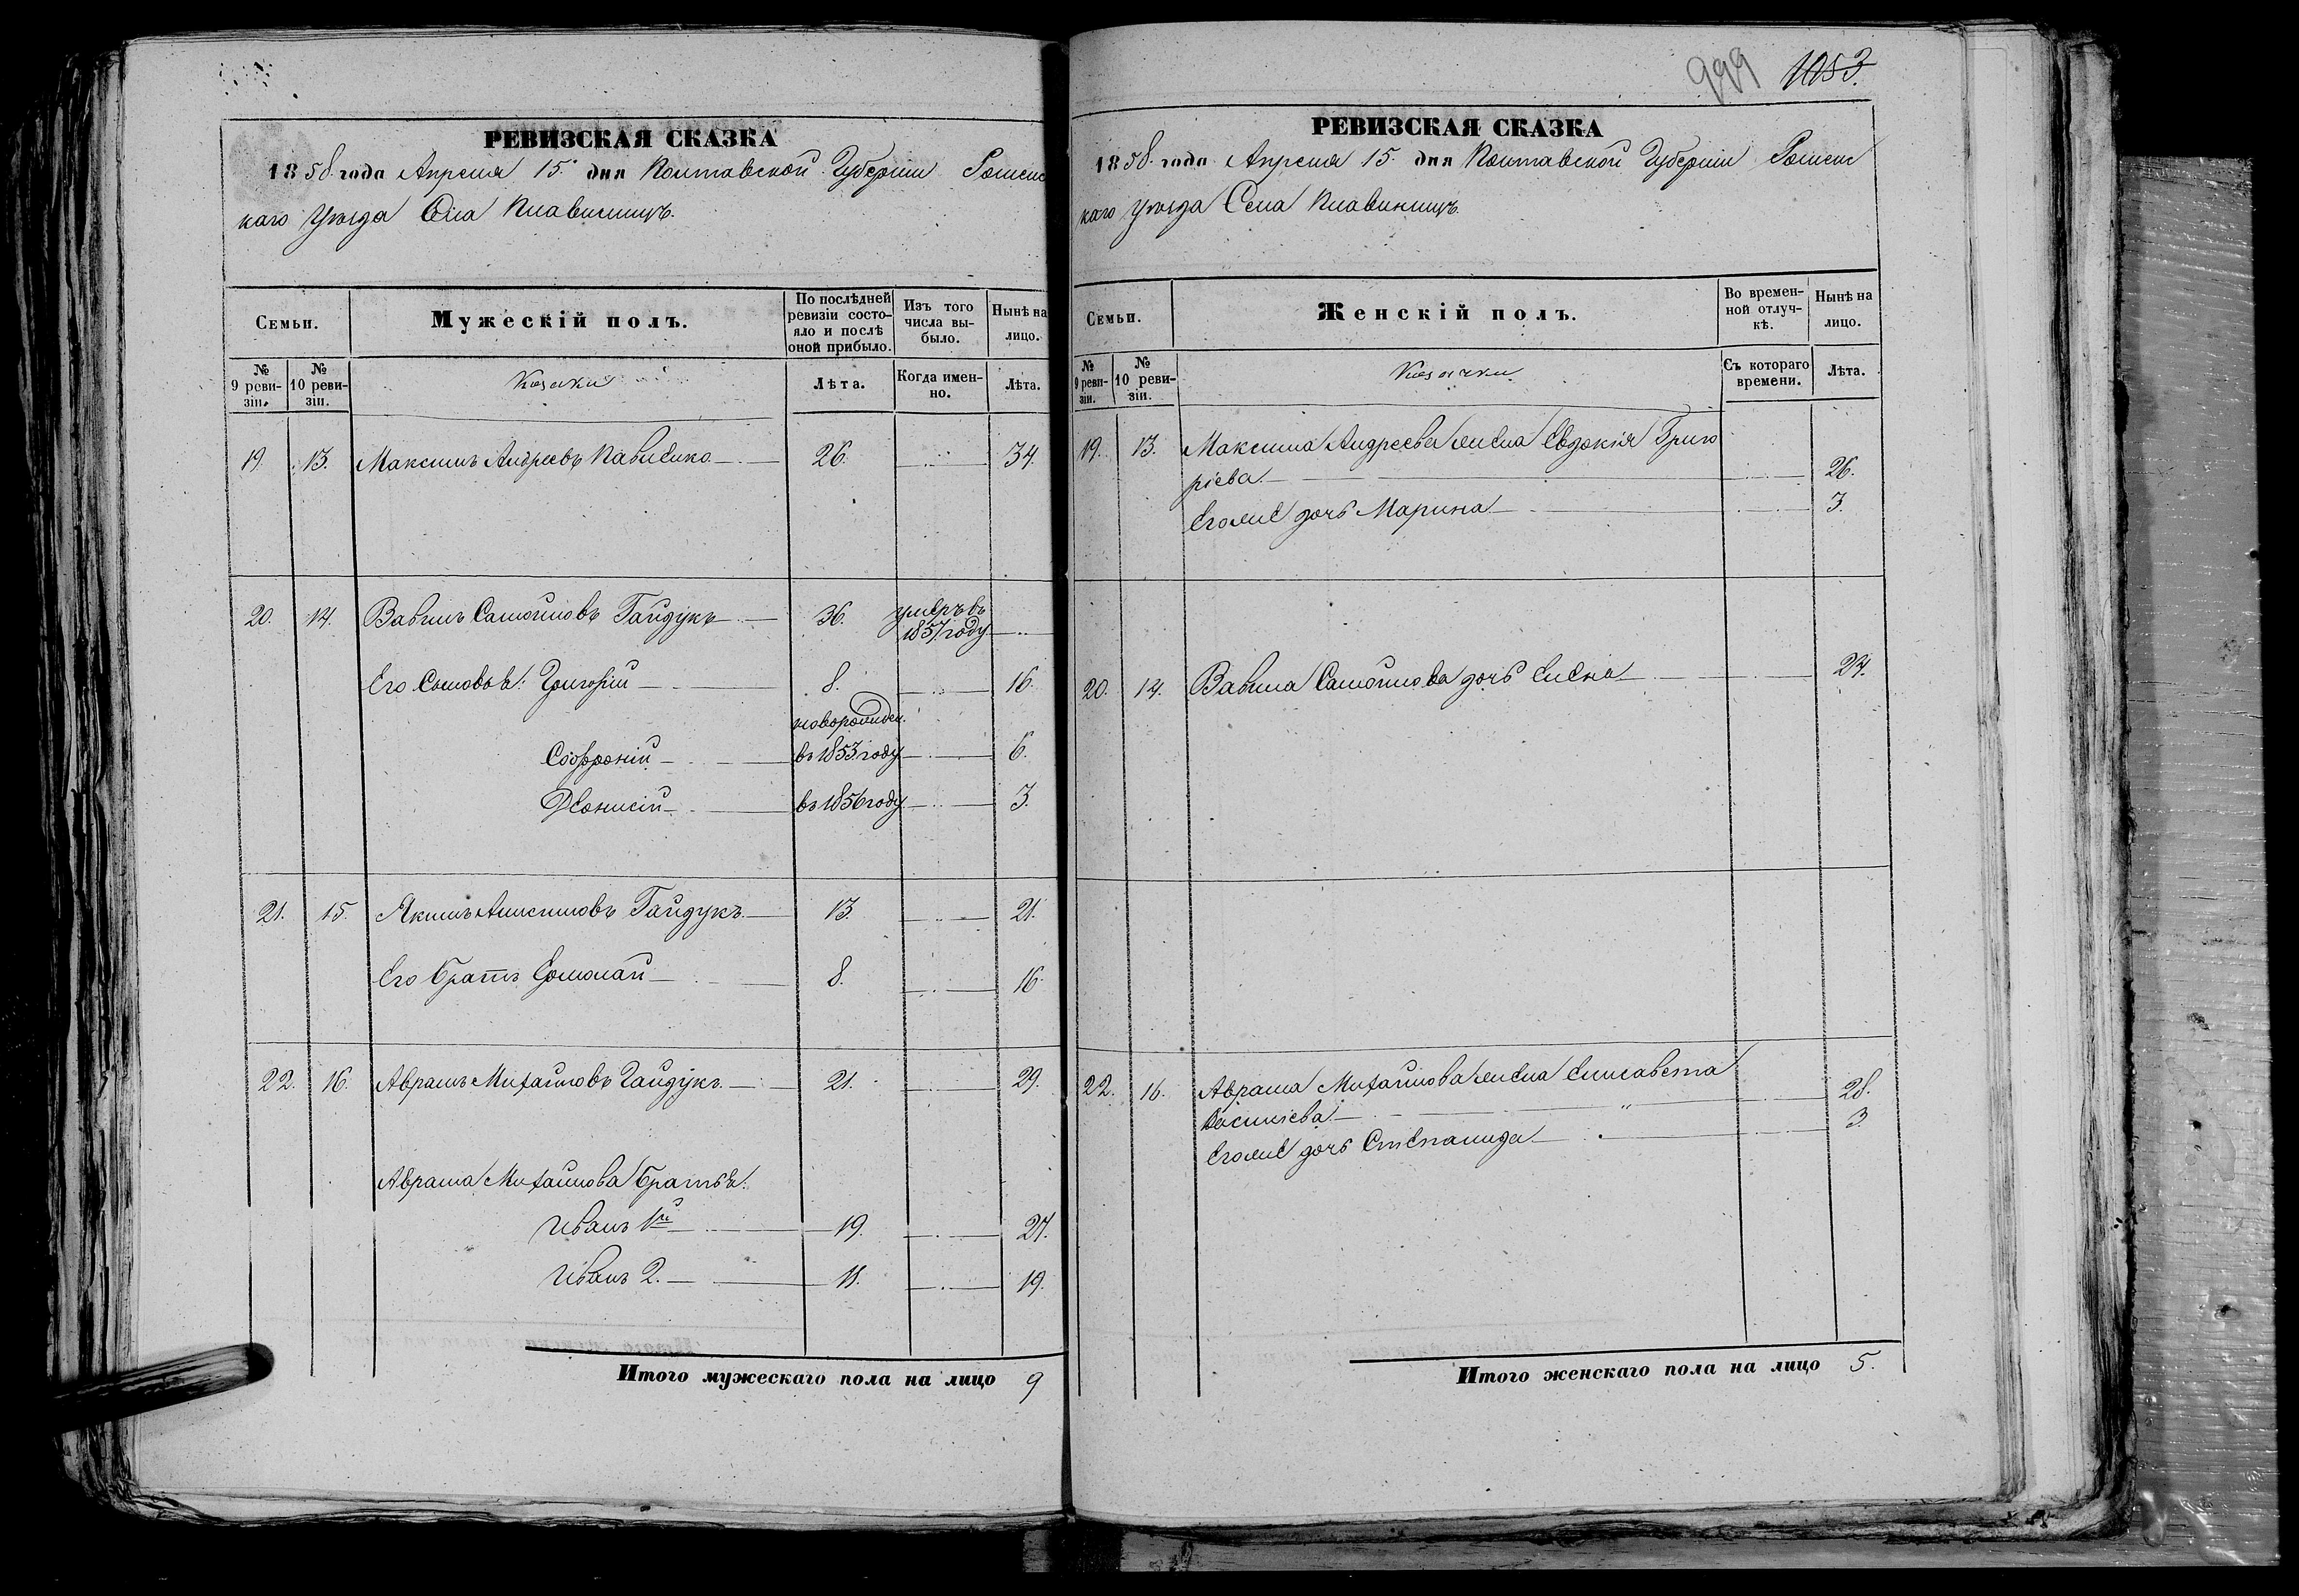 РЕВИЗСКАЯ СКАЗКА
1858. года Апреля 15. дня Полтавской Губерніи Роменс
каго Уѣзда Села Плавинищъ.
Семьи.
Мужескій полъ.
По послѣдней ревизіи состояло и послѣ оной прибыло.
Изъ того числа выбыло.
Нынѣ на лицо.
№ 9 ревизіи.
№ 10 ревизіи.
Козаки
Лѣта.
Когда именно.
Лѣта.
19. 13. Максимъ Андреевъ 26. 34.
20. 14. Вавилъ Самойловъ Гайдукъ 36. умеръ въ
1857. году
Его Сыновья: Григорій 8. 16.
новорожден.
Софроній въ 1853 году 6.
Діонисій въ 1856 году 3.
21. 15. Якимъ Анисимовъ Гайдукъ 13. 21.
Его братъ Ермолай 8. 16.
22. 16. Аврамъ Михайловъ Гайдукъ 21. 29.
Аврама Михайлова братья:
Иванъ 1й 19. 27.
Иванъ 2. 11. 19.
Итого мужескаго пола на лицо 9
999 1053.
РЕВИЗСКАЯ СКАЗКА
1858. года Апреля 15. дня Полтавской Губерніи Роменс
каго Уѣзда Села Плавинищъ.
Семьи.
Женскій полъ.
Во временной отлучкѣ.
Нынѣ на лицо.
№ 9 ревизіи.
№ 10 ревизіи.
Козачки.
Съ котораго времени.
Лѣта.
19. 13. Максима Андреева жена Евдокія Григо
ріева 26.
Его же дочь Марина 3.
20. 14. Вавила Самойлова дочь Елена 24.
22. 16. Аврама Михайлова жена Елисавета
Василіева 28.
Его же дочь Степанида 3.
Итого женскаго пола на лицо 5.